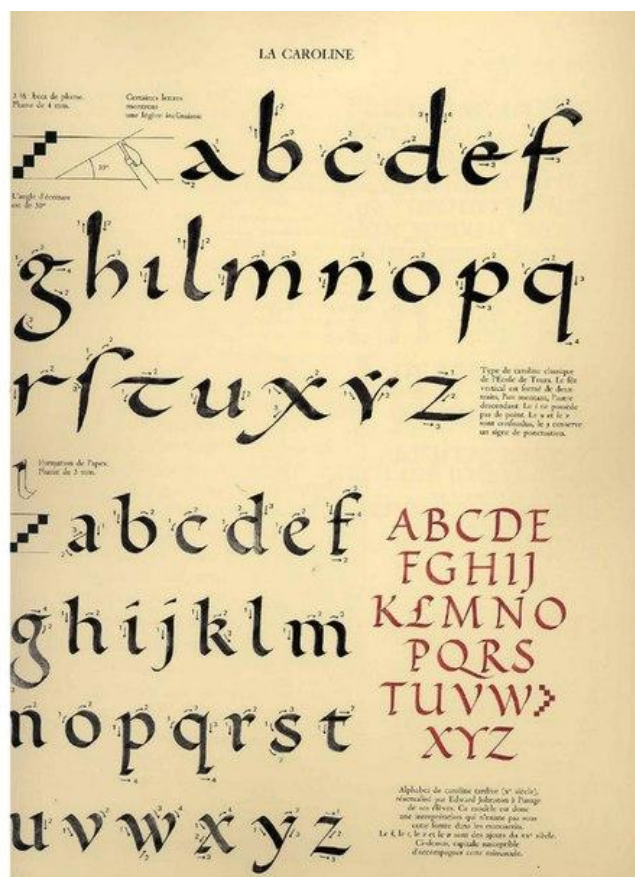 LA CAROLINE
2 ½ becs de plume.
Plume de 4 mm.
Certaines lettres
montrent
une légère inclinaison
30°
L'angle d'écriture
est de 30°
a b c d e f
g h ı l m n o p q
r ſ t u x y z
Type de caroline classique
de l'École de Tours. Le fût
vertical est formé de deux
traits, l'un montant, l'autre
descendant. Le i ne possède
pas de point. Le u et le v
sont confondus, le y conserve
un signe de ponctuation.
Formation de l'apex.
Plume de 3 mm.
a b c d e f
g h i j k l m
n o p q r s t
u v w x y z
A B C D E
F G H I J
K L M N O
P Q R S
T U V W
X Y Z
Alphabet de caroline tardive (Xe siècle),
réactualisé par Edward Johnston à l'usage
de ses élèves. Ce modèle est donc
une interprétation qui n'existe pas sous
cette forme dans les manuscrits.
Le k, le j, le v et le w sont des ajouts du XXe siècle.
Ci-dessus, capitale susceptible
d'accompagner cette minuscule.